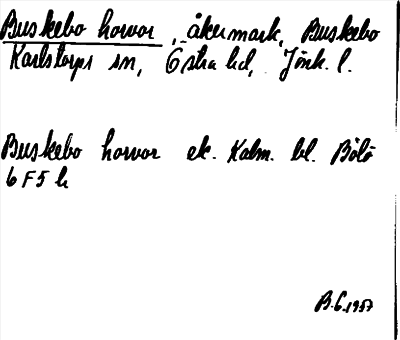 Buskebo horvor, åkermark, Buskebo
Karlstorps sn, Östra hd, Jönk. l.
Buskebo horvor ek. Kalm. bl. Bölö
6 F 5 h
B.G. 1957